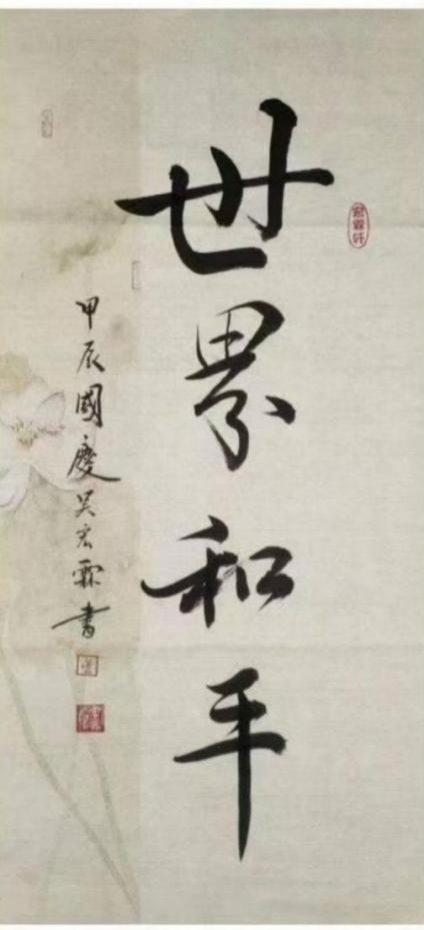 世界和平
甲辰國慶吴宏霖書